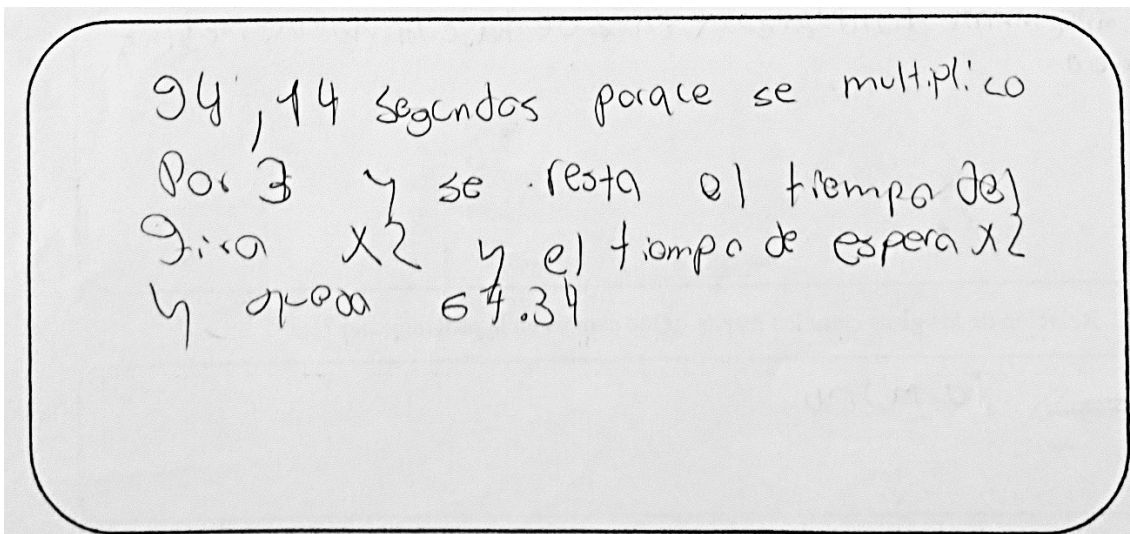 94,14 segundos porque se multiplico
Por 3 y se resta el tiempo del
gira x2 y el tiempo de espera x2
y queda 64.34